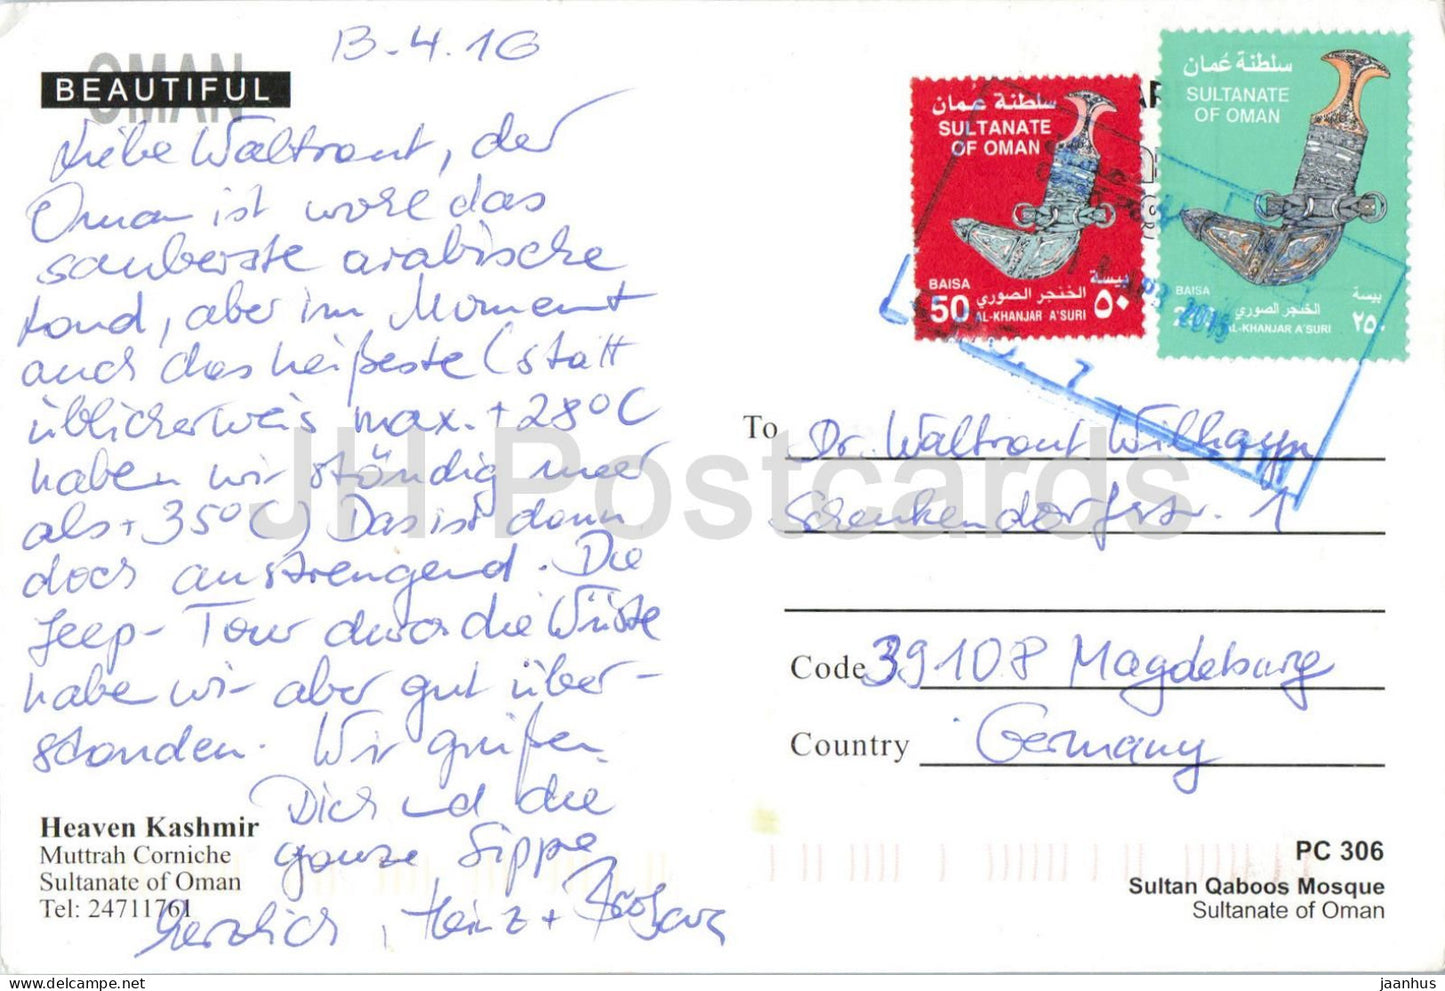 13.4.16
OMAN
BEAUTIFUL
Liebe Waltraut, der
Oman ist wohl das
sauberste arabische
Land, aber im Moment
auch das heißeste (statt
üblicherweis max. +28°C
haben wir ständig mehr
als +35°C) Das ist dann
doch anstrengend. Die
Jeep-Tour durch die Wüste
habe wir aber gut über-
standen. Wir grüßen
Dich und die
ganze Sippe
Herzlich, Heinz +
Heaven Kashmir
Muttrah Corniche
Sultanate of Oman
Tel: 24711761
سلطنة عُمان
SULTANATE
OF OMAN
BAISA
50
الخنجر الصوري
AL-KHANJAR A'SURI
بيسة
٥٠
سلطنة عُمان
SULTANATE
OF OMAN
BAISA
الخنجر الصوري
AL-KHANJAR A'SURI
بيسة
٢٥٠
To Dr. Waltraut Wilhayn
Schenkendorfstr. 1
Code 39108 Magdeburg
Country Germany
PC 306
Sultan Qaboos Mosque
Sultanate of Oman
JH Postcards
jaanhus